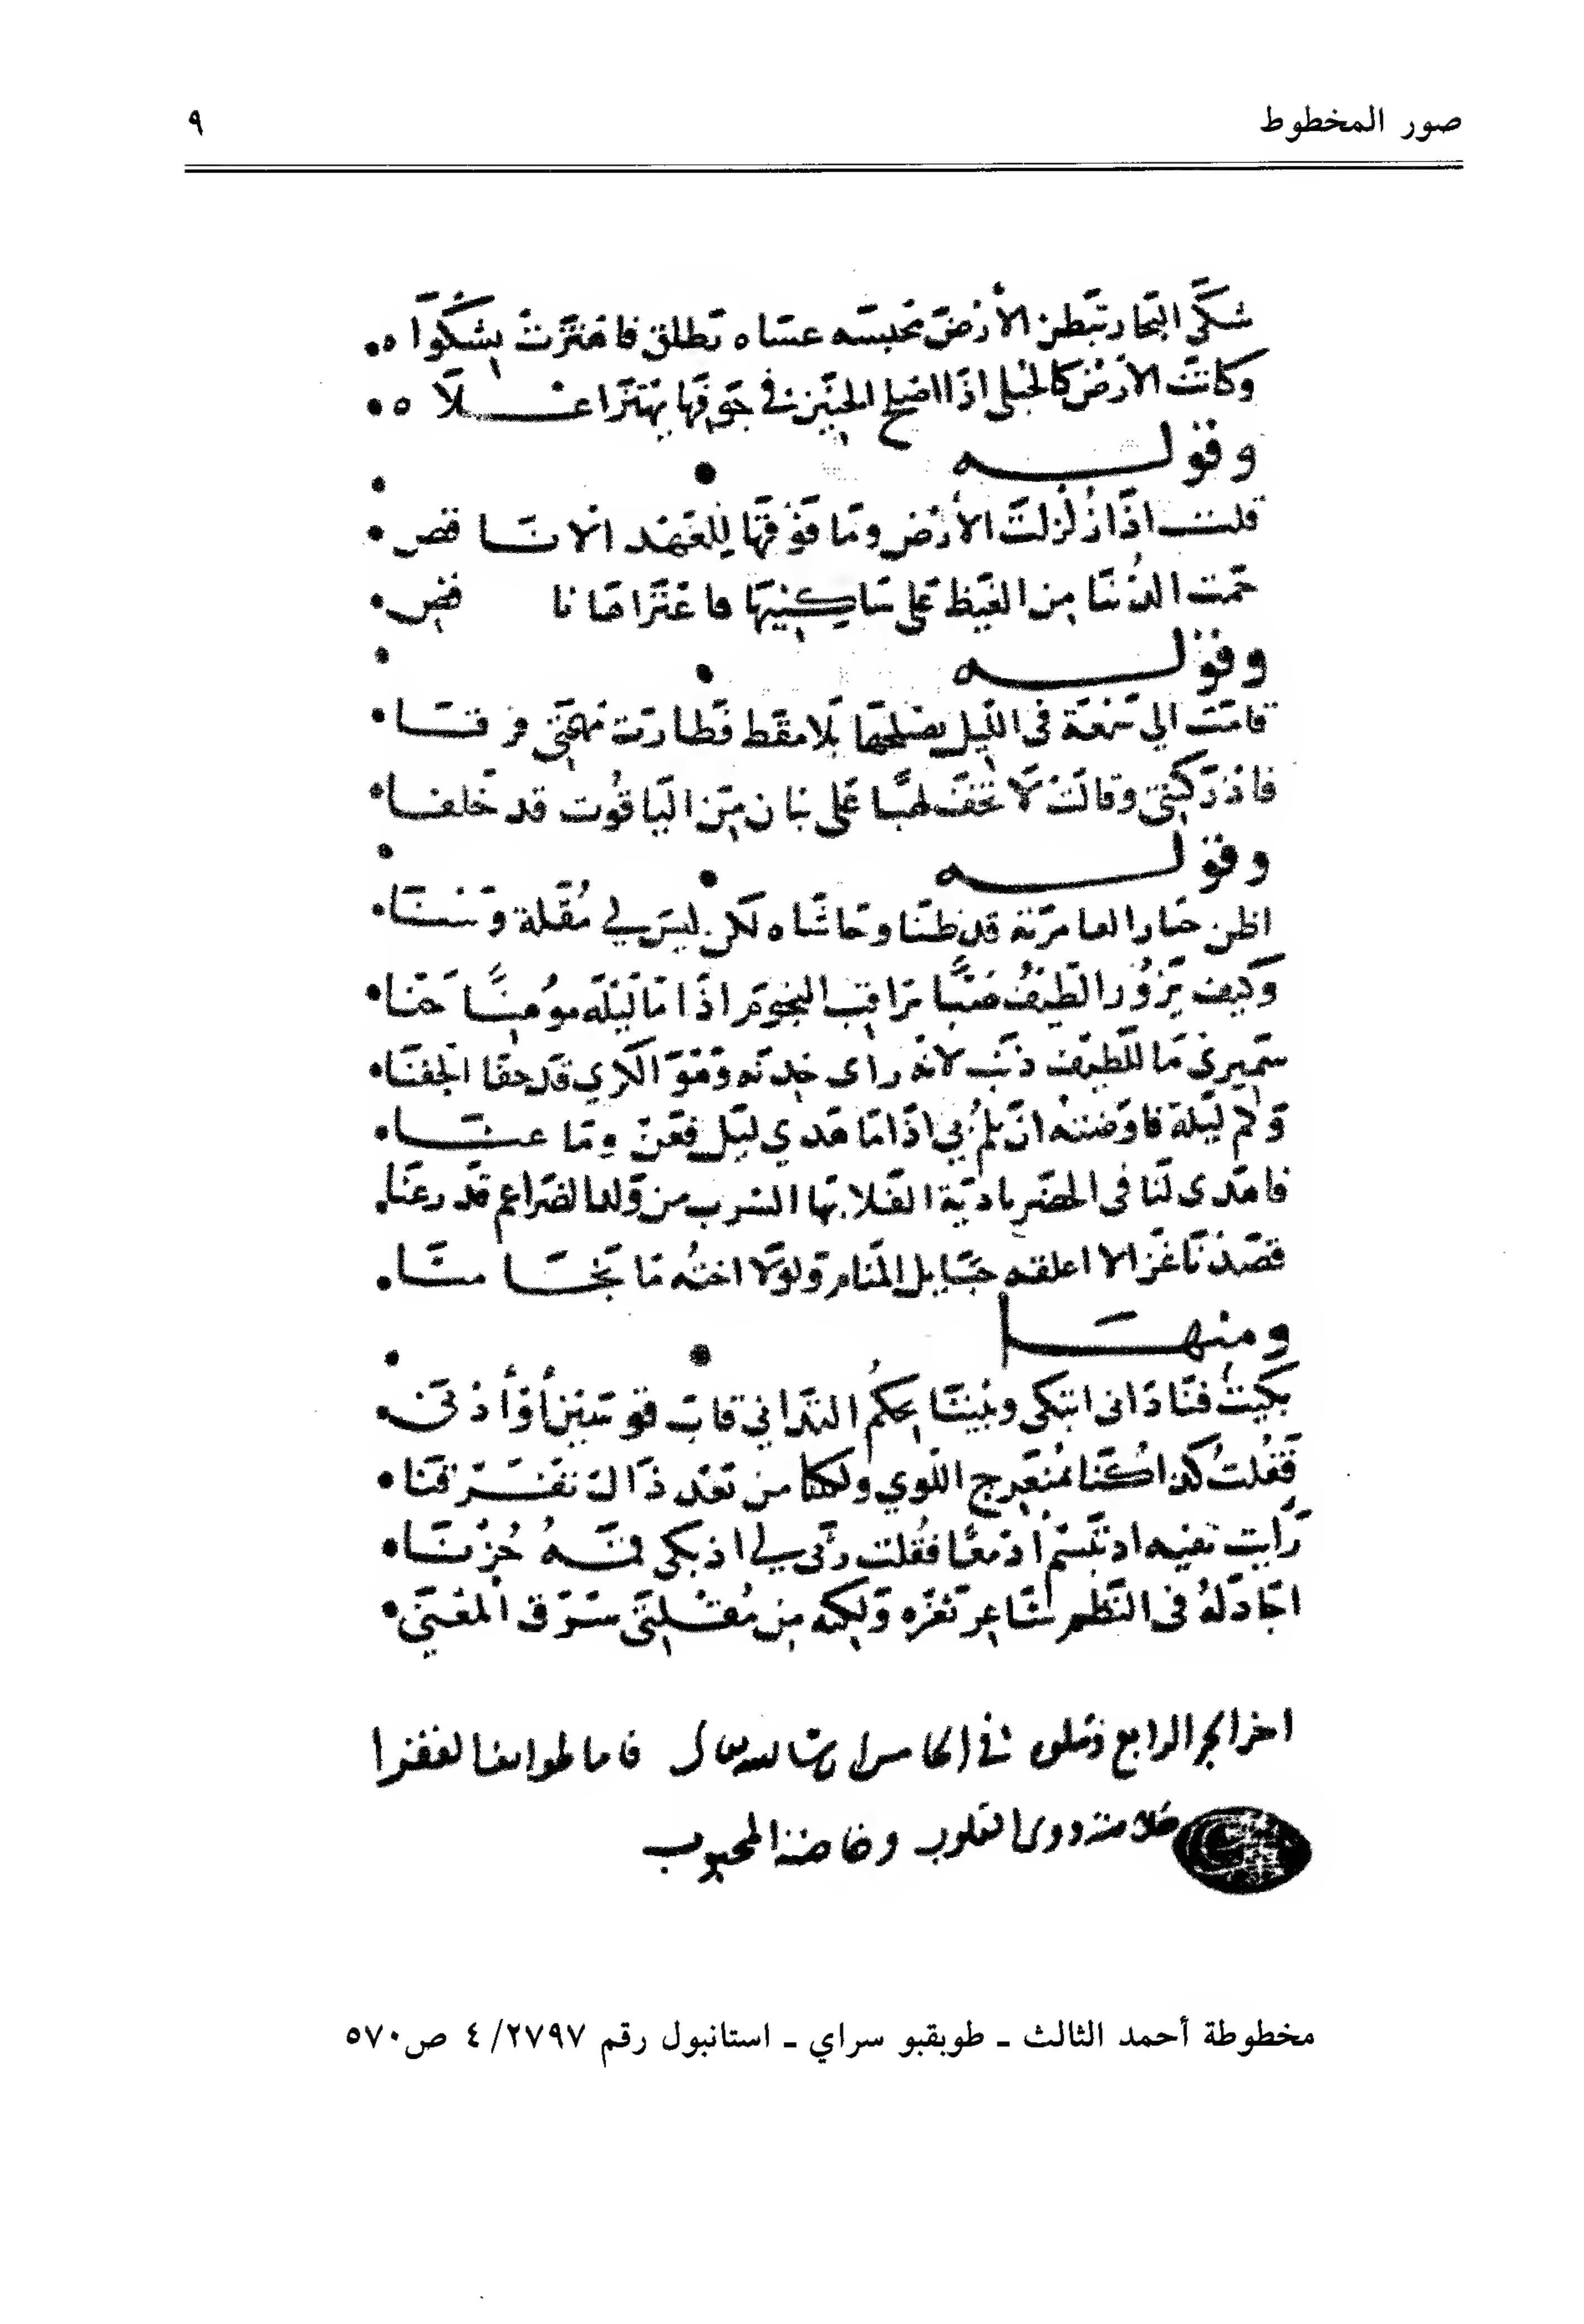 صور المخطوط ٩
شكى البخار ببطن الأرض محبسه عساه يطلق فاهتزت بشكواه
وكانت الأرض كالحبلى اذا اضطجع الجنين في جوفها يهتز
وقوله
قلت اذا زلزلت الأرض وما فوقها للعهد الانسا قص
حمت الدنيا من الغيظ على ساكنيها فاعتراها نافض
وقوله
قامت الي شمعة في الليل تصلحها بلا مقط فطارت مهجتي فرقا
فاذركتني وقالت لا تخف لهبا على بنان من الياقوت قد خلقا
وقوله
اظن خيار العامرية قد ظنا وحاشاه لكن ليس لي مقلة وسنا
وكيف يزور الطيف صبا مراقب النجوم اذا ما ليله موهنا جنا
سميري ما للطيف ذنب لانه راى خدنه وهو الكرى قد جفا الجفنا
وكم ليلة فاوضته ان يلم بي اذا ما هدي ليل فعن وما عنا
فاهدى لنا في الحضر بادية الفلا بها السرب من ولد الضراعم قد رعنا
قصدنا غزالا اعلقه حبايل المنام ولولا اخته ما نجا منا
ومنها
بكيت فناداني اتبكي وبيننا بحكم التداني قاب قوسين أو أدنى
فقلت كذا كنا بمنعرج اللوي ولكنا من بعد ذاك تفرقنا
رأيت بفيه اذ تبسم أدمعا فقلت رثى لي اذ بكى فمه حزنا
اجادله في النظم شاعر ثغره ولكنه من مقلتي سرق المعنى
اخر الجز الرابع وتتلوه في الخامس ان شا الله تعالى فاما طوايف الفقرا
ذوي القلوب وخاصة المحبوب
مخطوطة أحمد الثالث ـ طوبقبو سراي ـ استانبول رقم ٢٧٩٧/ ٤ ص٥٧٠